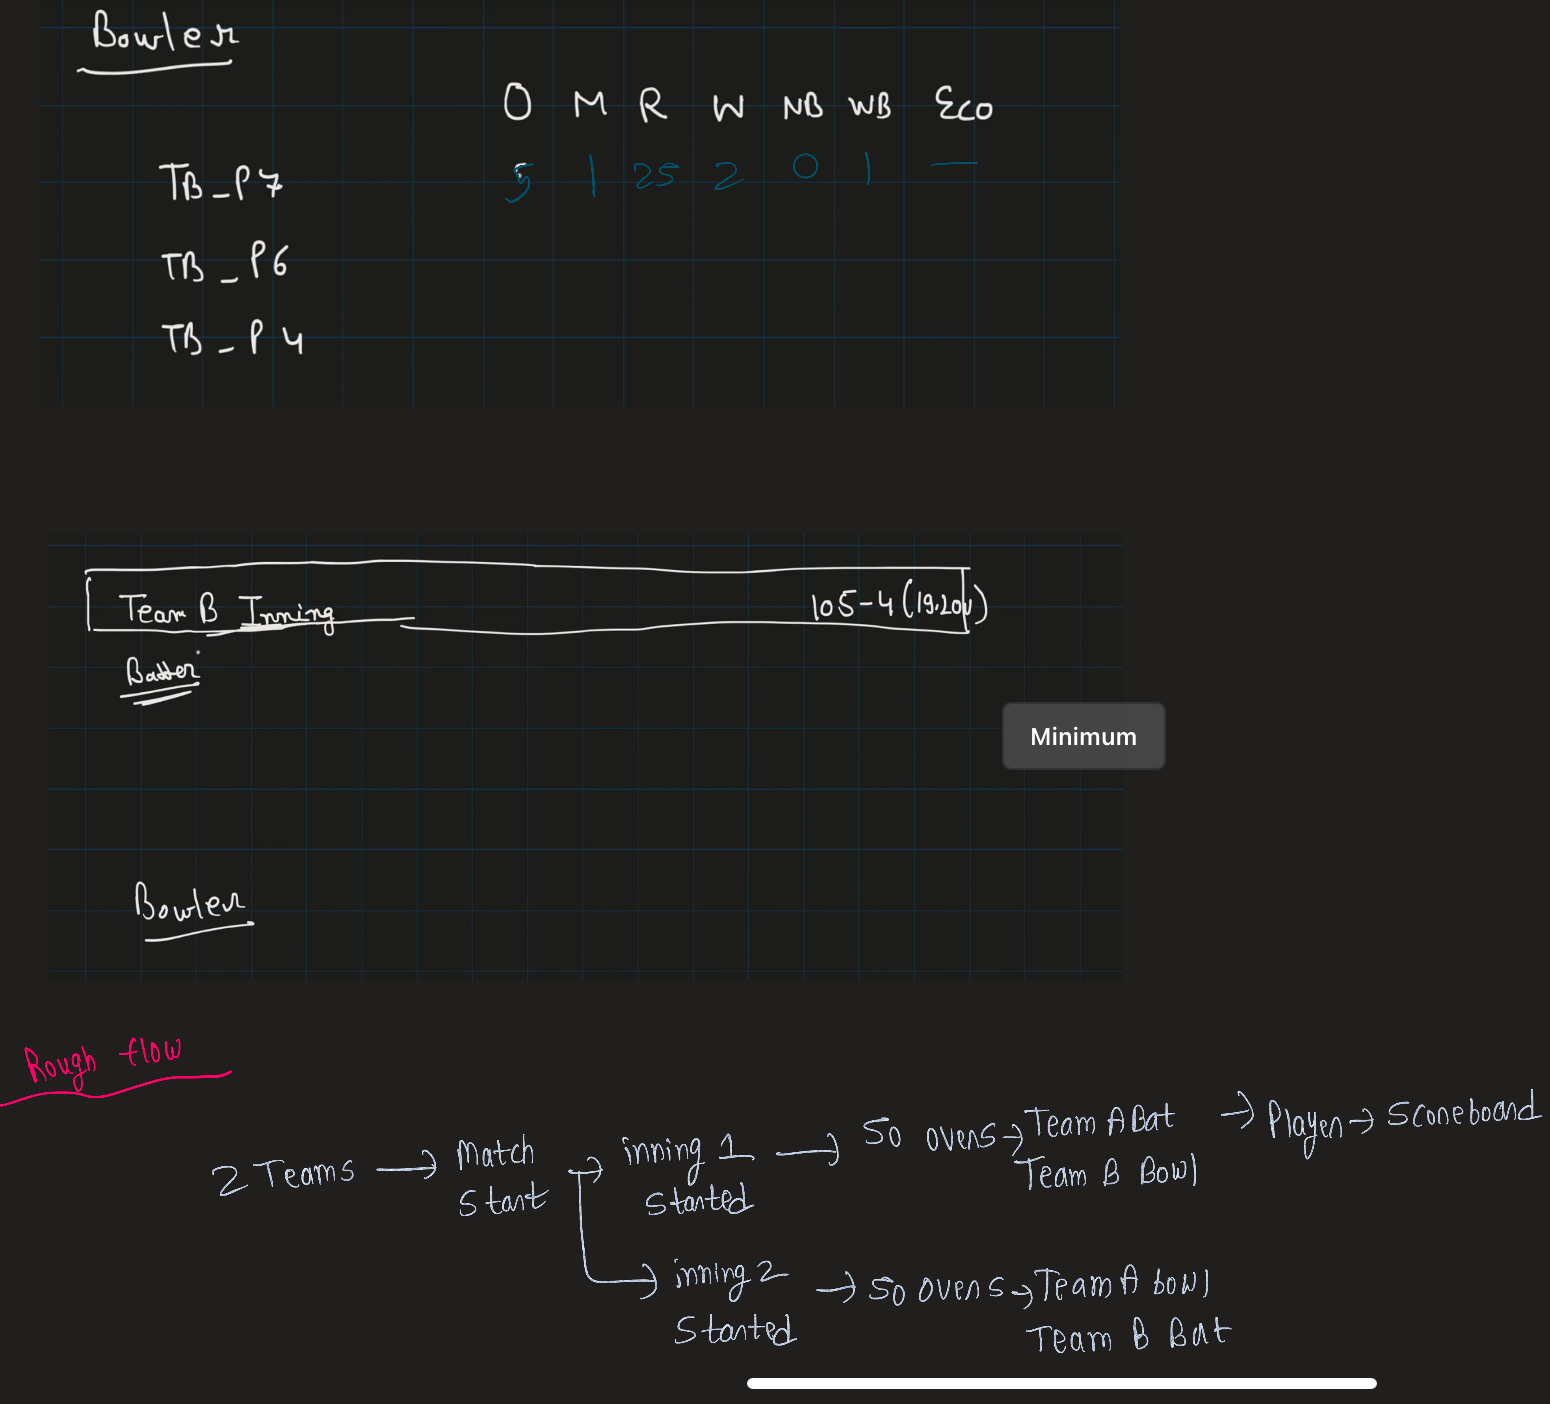 Bowler
O M R W NB WB Eco
TB_P7 5 1 25 2 0 1 —
TB_P6
TB_P4
Team B Inning 105-4 (19.2ov)
Batter
Minimum
Bowler
Rough flow
2 Teams → Match Start → inning 1 Started → 50 overs → Team A Bat Team B Bowl → Player → Scoreboard
→ inning 2 Started → 50 overs → Team A bowl Team B Bat